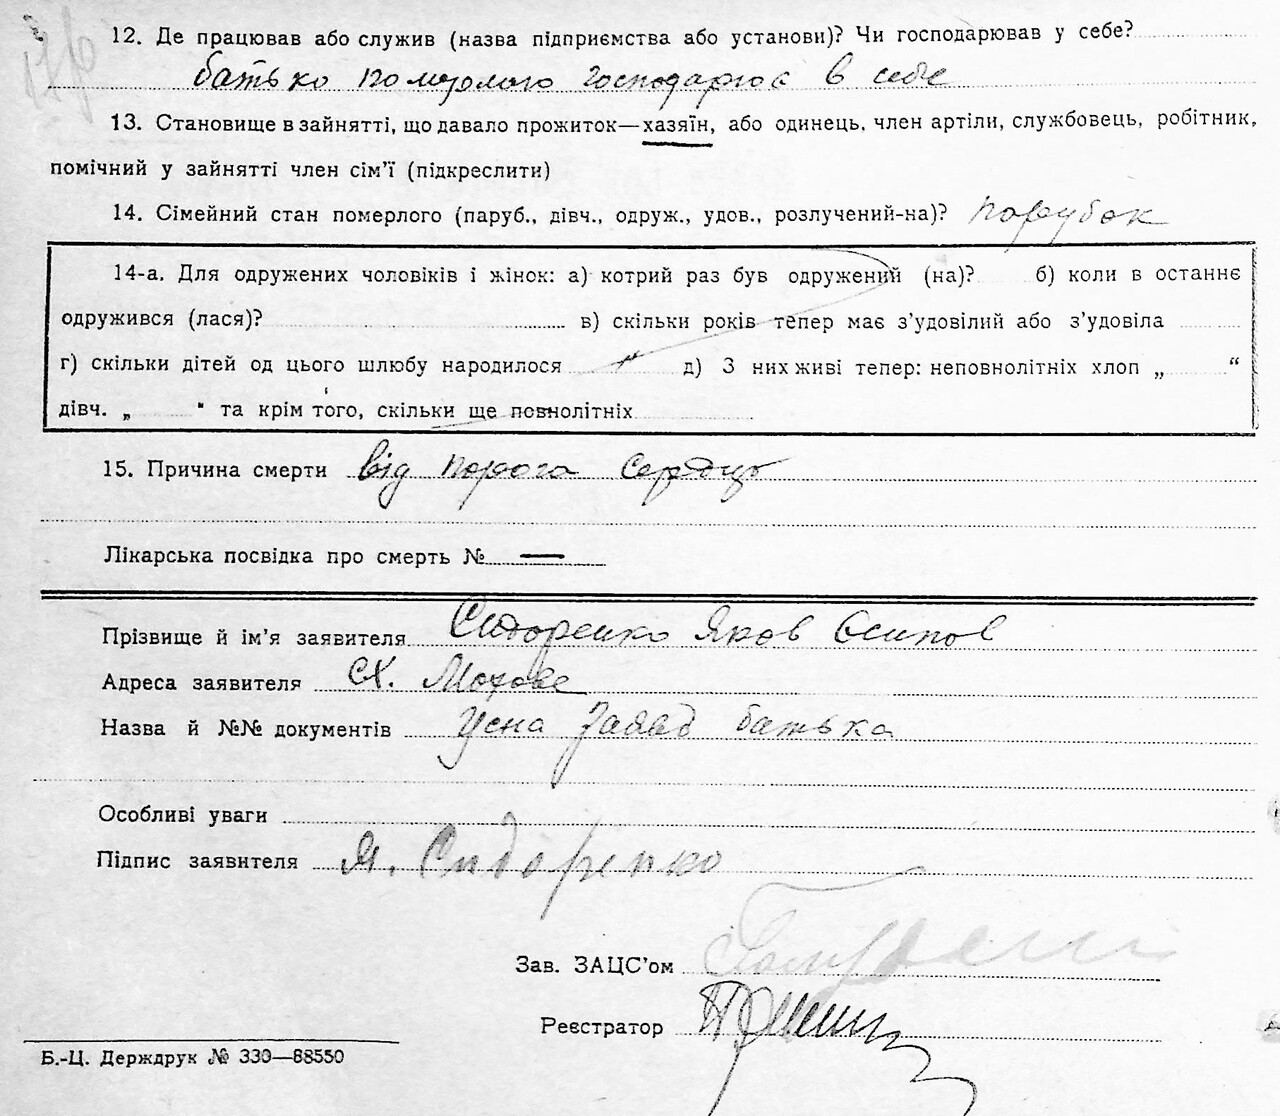 12. Де працював або служив (назва підприємства або установи)? Чи господарював у себе?
батько помέрлого господарює в себе
13. Становище в зайнятті, що давало прожиток—хазяїн, або одинець, член артіли, службовець, робітник,
помічний у зайнятті член сім’ї (підкреслити)
14. Сімейний стан померлого (паруб., дівч., одруж., удов., розлучений-на)? парубок
14-а. Для одружених чоловіків і жінок: а) котрий раз був одружений (на)? б) коли в останнє
одружився (лася)? в) скільки років тепер має з’удовілий або з’удовіла
г) скільки дітей од цього шлюбу народилося д) З них живі тепер: неповнолітніх хлоп „ “
дівч. „ “ та крім того, скільки ще повнолітніх
15. Причина смерти від порога сердця
Лікарська посвідка про смерть № —
Прізвище й ім’я заявителя Сидоренко Яков Осипов
Адреса заявителя сх. Мохове
Назва й №№ документів Усна Заява батька
Особливі уваги
Підпис заявителя Я. Сидоренко
Зав. ЗАЦС’ом
Реєстратор
Б.-Ц. Держдрук № 330—88550